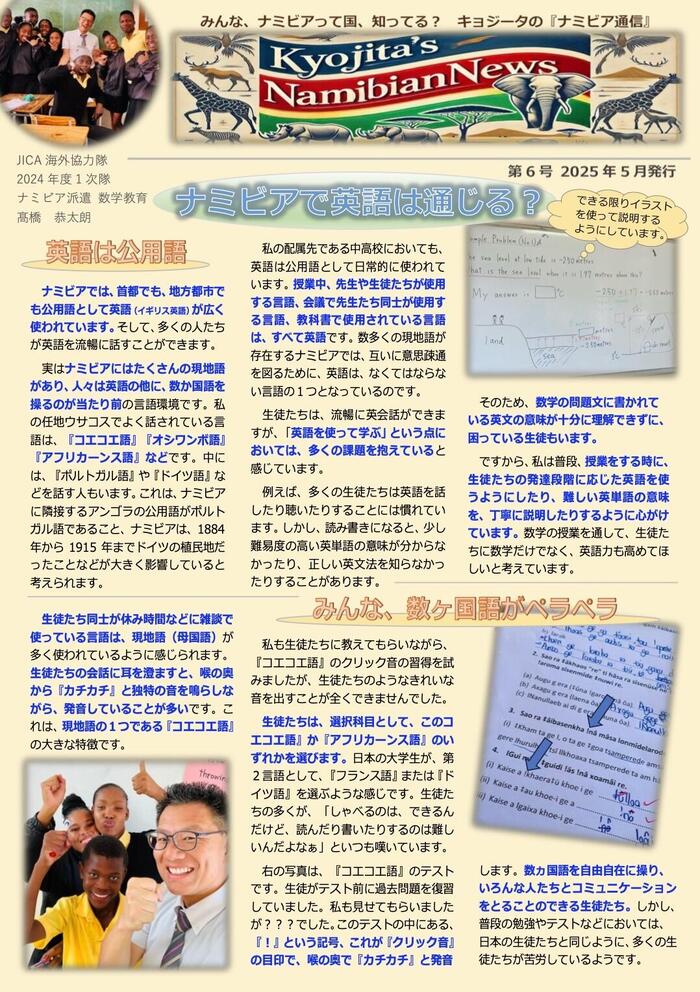 みんな、ナミビアって国、知ってる？　キョジータの『ナミビア通信』
Kyojita's
Namibian News
JICA 海外協力隊
2024 年度 1 次隊
ナミビア派遣 数学教育
髙橋　恭太朗
第 6 号 2025 年 5 月発行
ナミビアで英語は通じる？
英語は公用語
ナミビアでは、首都でも、地方都市で
も公用語として英語（イギリス英語）が広く
使われています。そして、多くの人たち
が英語を流暢に話すことができます。
実はナミビアにはたくさんの現地語
があり、人々は英語の他に、数か国語を
操るのが当たり前の言語環境です。私
の任地ウサコスでよく話されている言
語は、『コエコエ語』『オシワンボ語』
『アフリカーンス語』などです。中に
は、『ポルトガル語』や『ドイツ語』な
どを話す人もいます。これは、ナミビア
に隣接するアンゴラの公用語がポルト
ガル語であること、ナミビアは、1884
年から 1915 年までドイツの植民地だ
ったことなどが大きく影響していると
考えられます。
私の配属先である中高校においても、
英語は公用語として日常的に使われて
います。授業中、先生や生徒たちが使用
する言語、会議で先生たち同士が使用す
る言語、教科書で使用されている言語
は、すべて英語です。数多くの現地語が
存在するナミビアでは、互いに意思疎通
を図るために、英語は、なくてはならな
い言語の１つとなっているのです。
生徒たちは、流暢に英会話ができま
すが、「英語を使って学ぶ」という点に
おいては、多くの課題を抱えていると
感じています。
例えば、多くの生徒たちは英語を話
したり聴いたりすることには慣れてい
ます。しかし、読み書きになると、少し
難易度の高い英単語の意味が分からな
かったり、正しい英文法を知らなかっ
たりすることがあります。
できる限りイラスト
を使って説明する
ようにしています。
ample. Problem (No.1)
he sea level at low tide is -230 metres
hat is the sea level when it is 197 metres
My answer is
land
sea
そのため、数学の問題文に書かれて
いる英文の意味が十分に理解できずに、
困っている生徒もいます。
ですから、私は普段、授業をする時に、
生徒たちの発達段階に応じた英語を使
うようにしたり、難しい英単語の意味
を、丁寧に説明したりするように心がけ
ています。数学の授業を通して、生徒た
ちに数学だけでなく、英語力も高めてほ
しいと考えています。
みんな、数ヶ国語がペラペラ
生徒たち同士が休み時間などに雑談で
使っている言語は、現地語（母国語）が
多く使われているように感じられます。
生徒たちの会話に耳を澄ますと、喉の奥
から『カチカチ』と独特の音を鳴らしな
がら、発音していることが多いです。こ
れは、現地語の１つである『コエコエ語』
の大きな特徴です。
throwing
私も生徒たちに教えてもらいながら、
『コエコエ語』のクリック音の習得を試
みましたが、生徒たちのようなきれいな
音を出すことが全くできませんでした。
生徒たちは、選択科目として、このコ
エコエ語』か『アフリカーンス語』のい
ずれかを選びます。日本の大学生が、第
２言語として、『フランス語』または『ド
イツ語』を選ぶような感じです。生徒た
ちの多くが、「しゃべるのは、できるん
だけど、読んだり書いたりするのは難し
いんだよなぁ」といつも嘆いています。
右の写真は、『コエコエ語』のテスト
です。生徒がテスト前に過去問題を復習
していました。私も見せてもらいました
が？？？でした。このテストの中にある、
『！』という記号、これが『クリック音』
の目印で、喉の奥で『カチカチ』と発音
します。数ヵ国語を自由自在に操り、
いろんな人たちとコミュニケーション
をとることのできる生徒たち。しかし、
普段の勉強やテストなどにおいては、
日本の生徒たちと同じように、多くの生
徒たちが苦労しているようです。